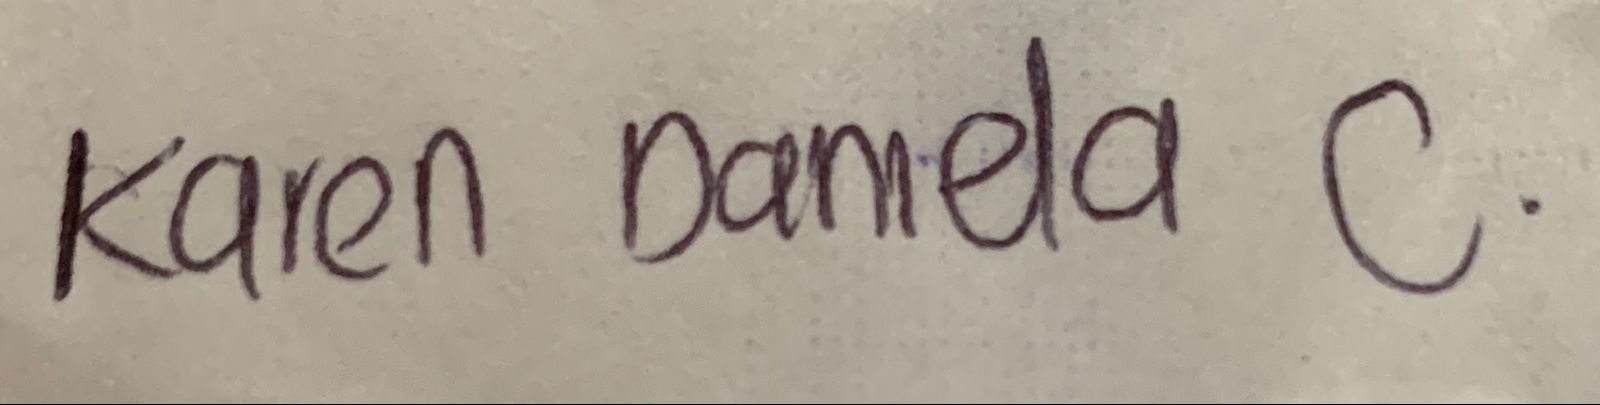 Karen Daniela C.